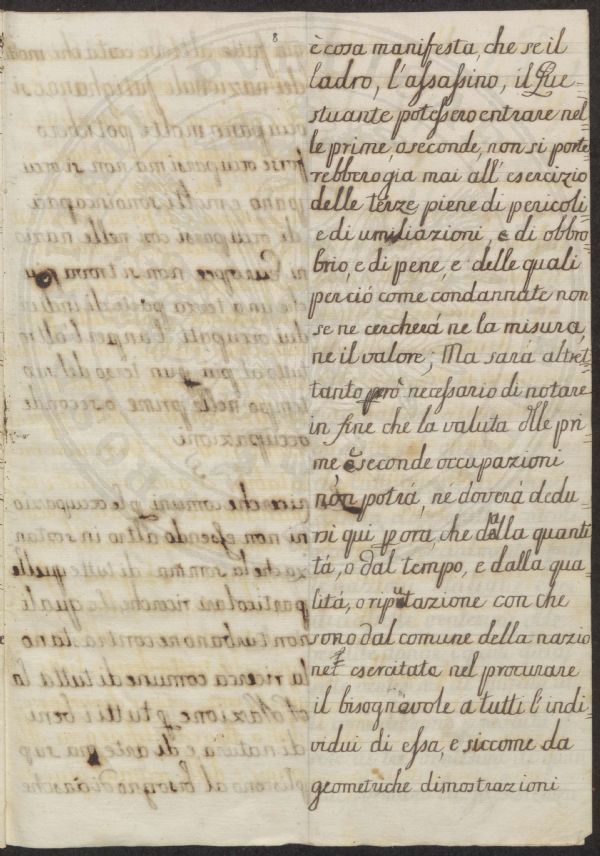 8
è cosa manifesta, che se il
ladro, l'assassino, il Que-
stuante potessero entrare nel
le prime, o seconde, non si porte
rebbero gia mai all' esercizio
delle terze piene di pericoli
e di umiliazioni, e di obbro
brio, e di pene, e delle quali
perciò come condannate non
se ne cercherá ne la misura,
ne il valore; Ma sará altret
tanto però necessario di notare
in fine che la valuta dlle pri
me, e seconde occupazioni
non potrá, ne doverá dedu
rsi qui p ora, che dalla quanti
tá, o dal tempo, e dalla qua
litá, o riputazione con che
sono dal comune della nazio
ne esercitate nel procurare
il bisognevole a tutti l' indi
vidui di essa, e siccome da
geometriche dimostrazioni